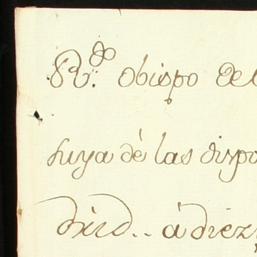 R.do obispo de
suya de las dispo
á diez